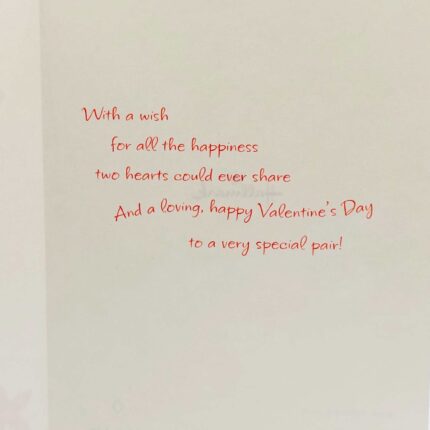 With a wish
for all the happiness
two hearts could ever share
And a loving, happy Valentine's Day
to a very special pair!